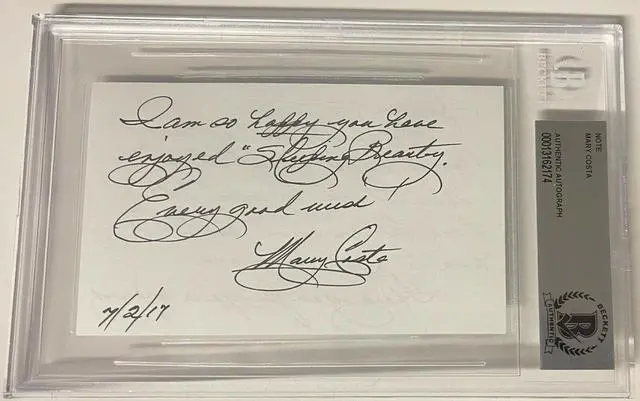 I am so happy you have
enjoyed "Sleeping Beauty.
Every good wish!
Mary Costa
7/2/17
NOTE
MARY COSTA
AUTHENTIC AUTOGRAPH
00013162174
BECKETT
AUTHENTIC